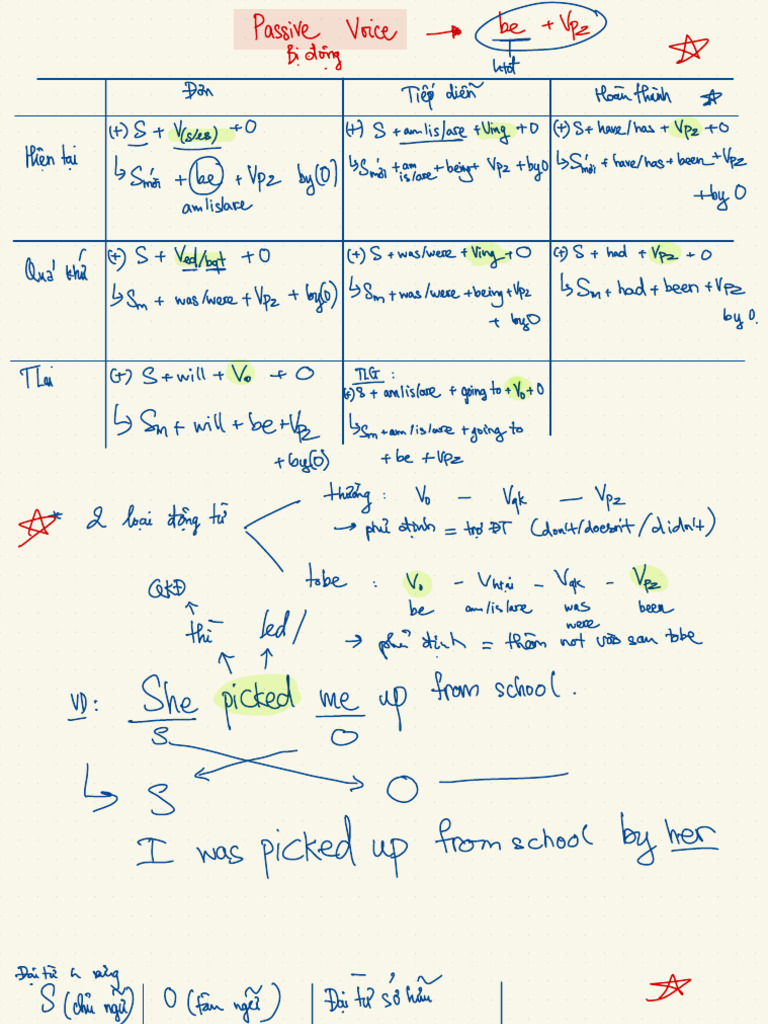 Passive Voice → be + Vp2
Bị động
Đơn
Tiếp diễn
Hoàn thành
Hiện tại
(+) S + V(s/es) + O
↳ Smới + be + Vp2 by(O)
am/is/are
(+) S + am/is/are + Ving + O
↳ Smới + am is/are + being + Vp2 + by O
(+) S + have/has + Vp2 + O
↳ Smới + have/has + been + Vp2
+ by O
Quá khứ
(+) S + Ved/bqt + O
↳ Sm + was/were + Vp2 + by(O)
(+) S + was/were + Ving + O
↳ Sm + was/were + being + Vp2
+ by O
(+) S + had + Vp2 + O
↳ Sm + had + been + Vp2
by O.
TLai
(+) S + will + Vo + O
↳ Sm + will + be + Vp2
+ by(O)
TLG :
(+) S + am/is/are + going to + Vo + O
↳ Sm + am/is/are + going to
+ be + Vp2
* 2 loại động từ
thường : Vo – Vqk – Vp2
→ phủ định = trợ ĐT (don't/doesn't/didn't)
tobe : Vo – Vhtại – Vqk – Vp2
be am/is/are was were been
→ phủ định = thêm not vào sau tobe
QKĐ
thì led/
VD : She picked me up from school.
S O
↳ S O
I was picked up from school by her
Đại từ
S (chủ ngữ) | O (tân ngữ) | Đại từ sở hữu